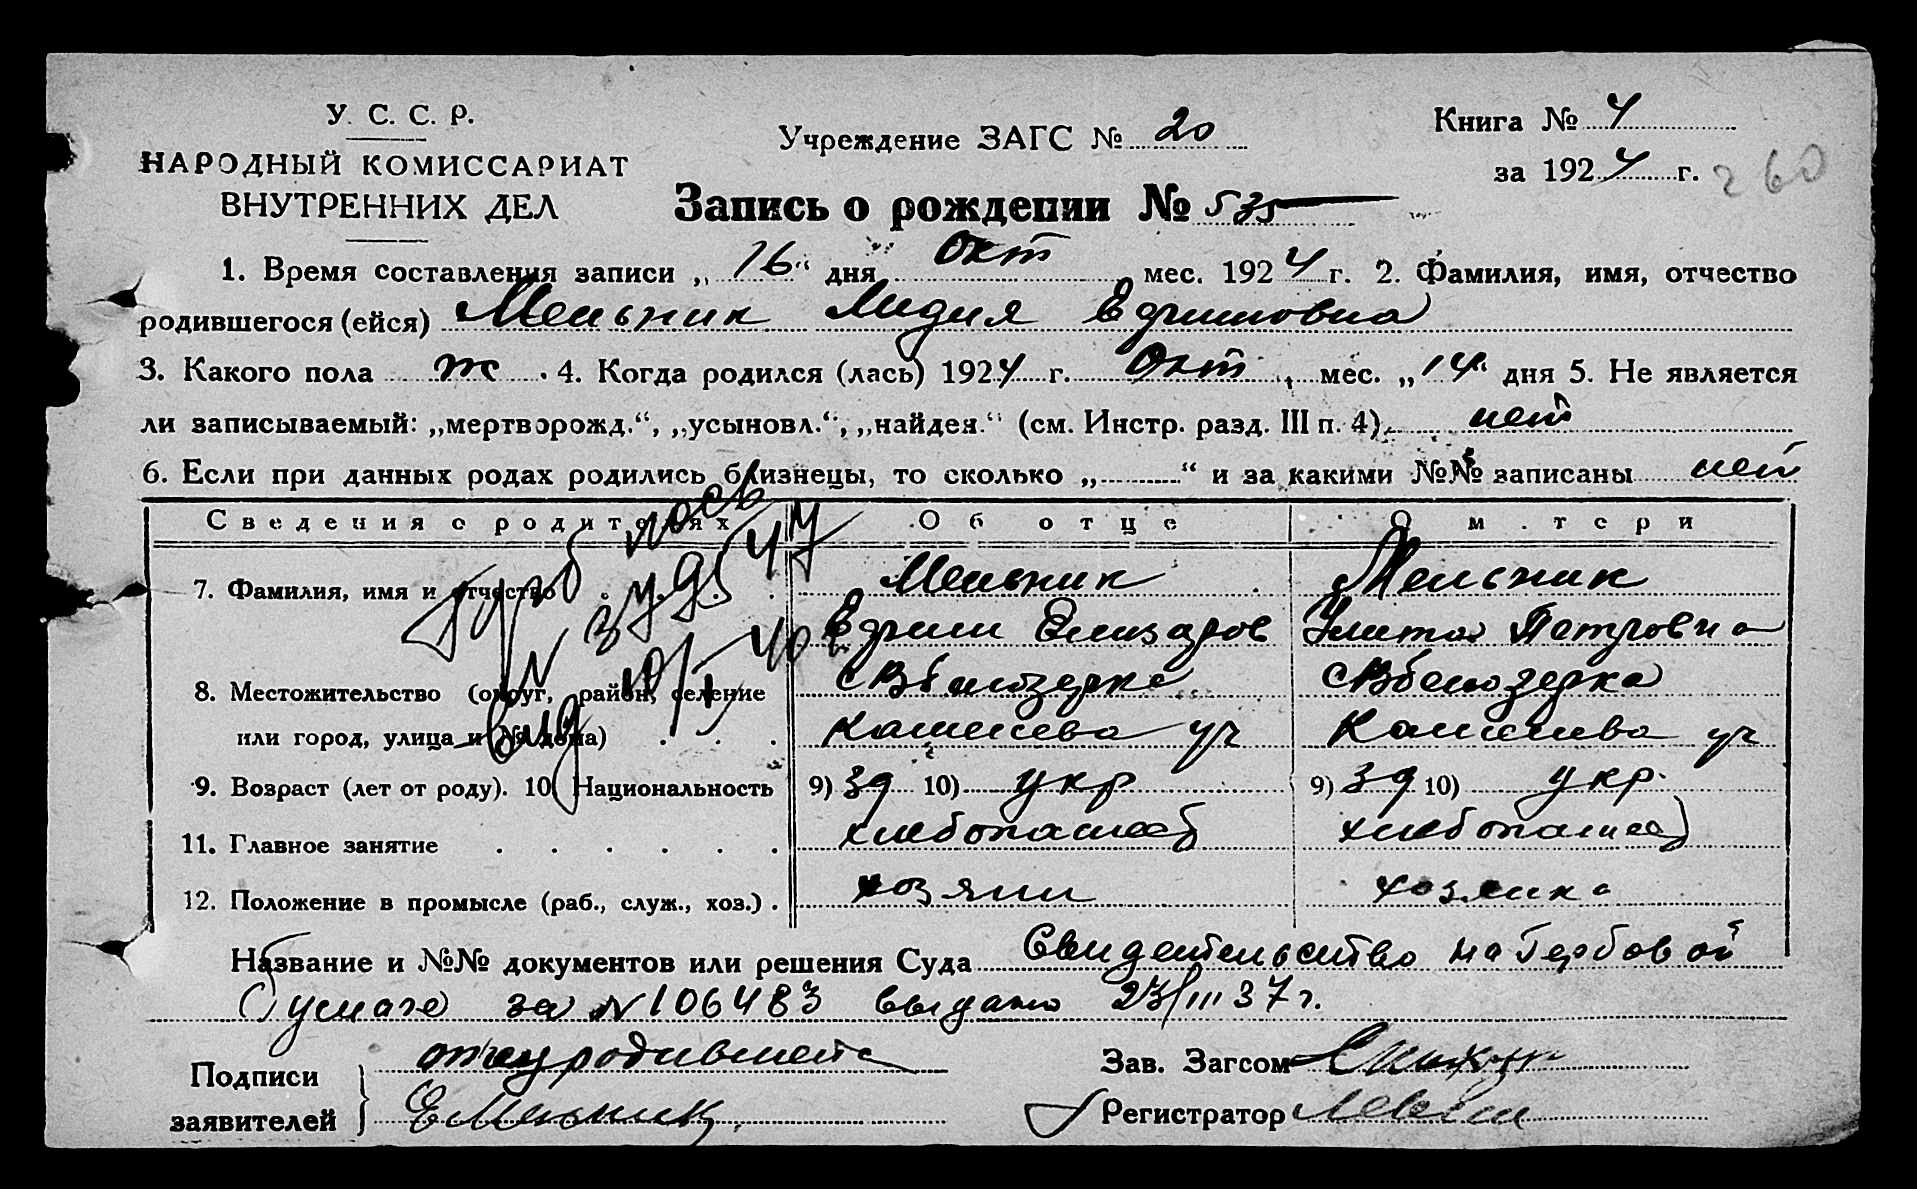 У. С. С. Р.
НАРОДНЫЙ КОМИССАРИАТ
ВНУТРЕННИХ ДЕЛ
Учреждение ЗАГС № 20
Книга № 4
за 1924 г. 260
Запись о рождении № 535
1. Время составления записи „16“ дня Окт мес. 1924 г. 2. Фамилия, имя, отчество
родившегося (ейся) Мельник Лидия Ефимовна
3. Какого пола ж . 4. Когда родился (лась) 1924 г. Окт мес. „14“ дня 5. Не является
ли записываемый: „мертворожд.“, „усыновл.“, „найден.“ (см. Инстр. разд. III п. 4) нет
6. Если при данных родах родились близнецы, то сколько „..........“ и за какими №№ записаны нет
Сведения о родителях Об отце О матери
7. Фамилия, имя и отчество Мельник Мельник
Ефим Елизаров Улита Петровна
8. Местожительство (округ, район, селение
или город, улица и № дома)
9. Возраст (лет от роду). 10. Национальность 9) 39 10) укр 9) 39 10) укр.
11. Главное занятие хлебопашец хлебопашец
12. Положение в промысле (раб., служ., хоз.) . хозяин хозяйка
Название и №№ документов или решения Суда Свидетельство на Гербовой
бумаге за № 106483 выдано 23/III 37 г.
Подписи
заявителей
Е Мельник
Зав. Загсом
Регистратор